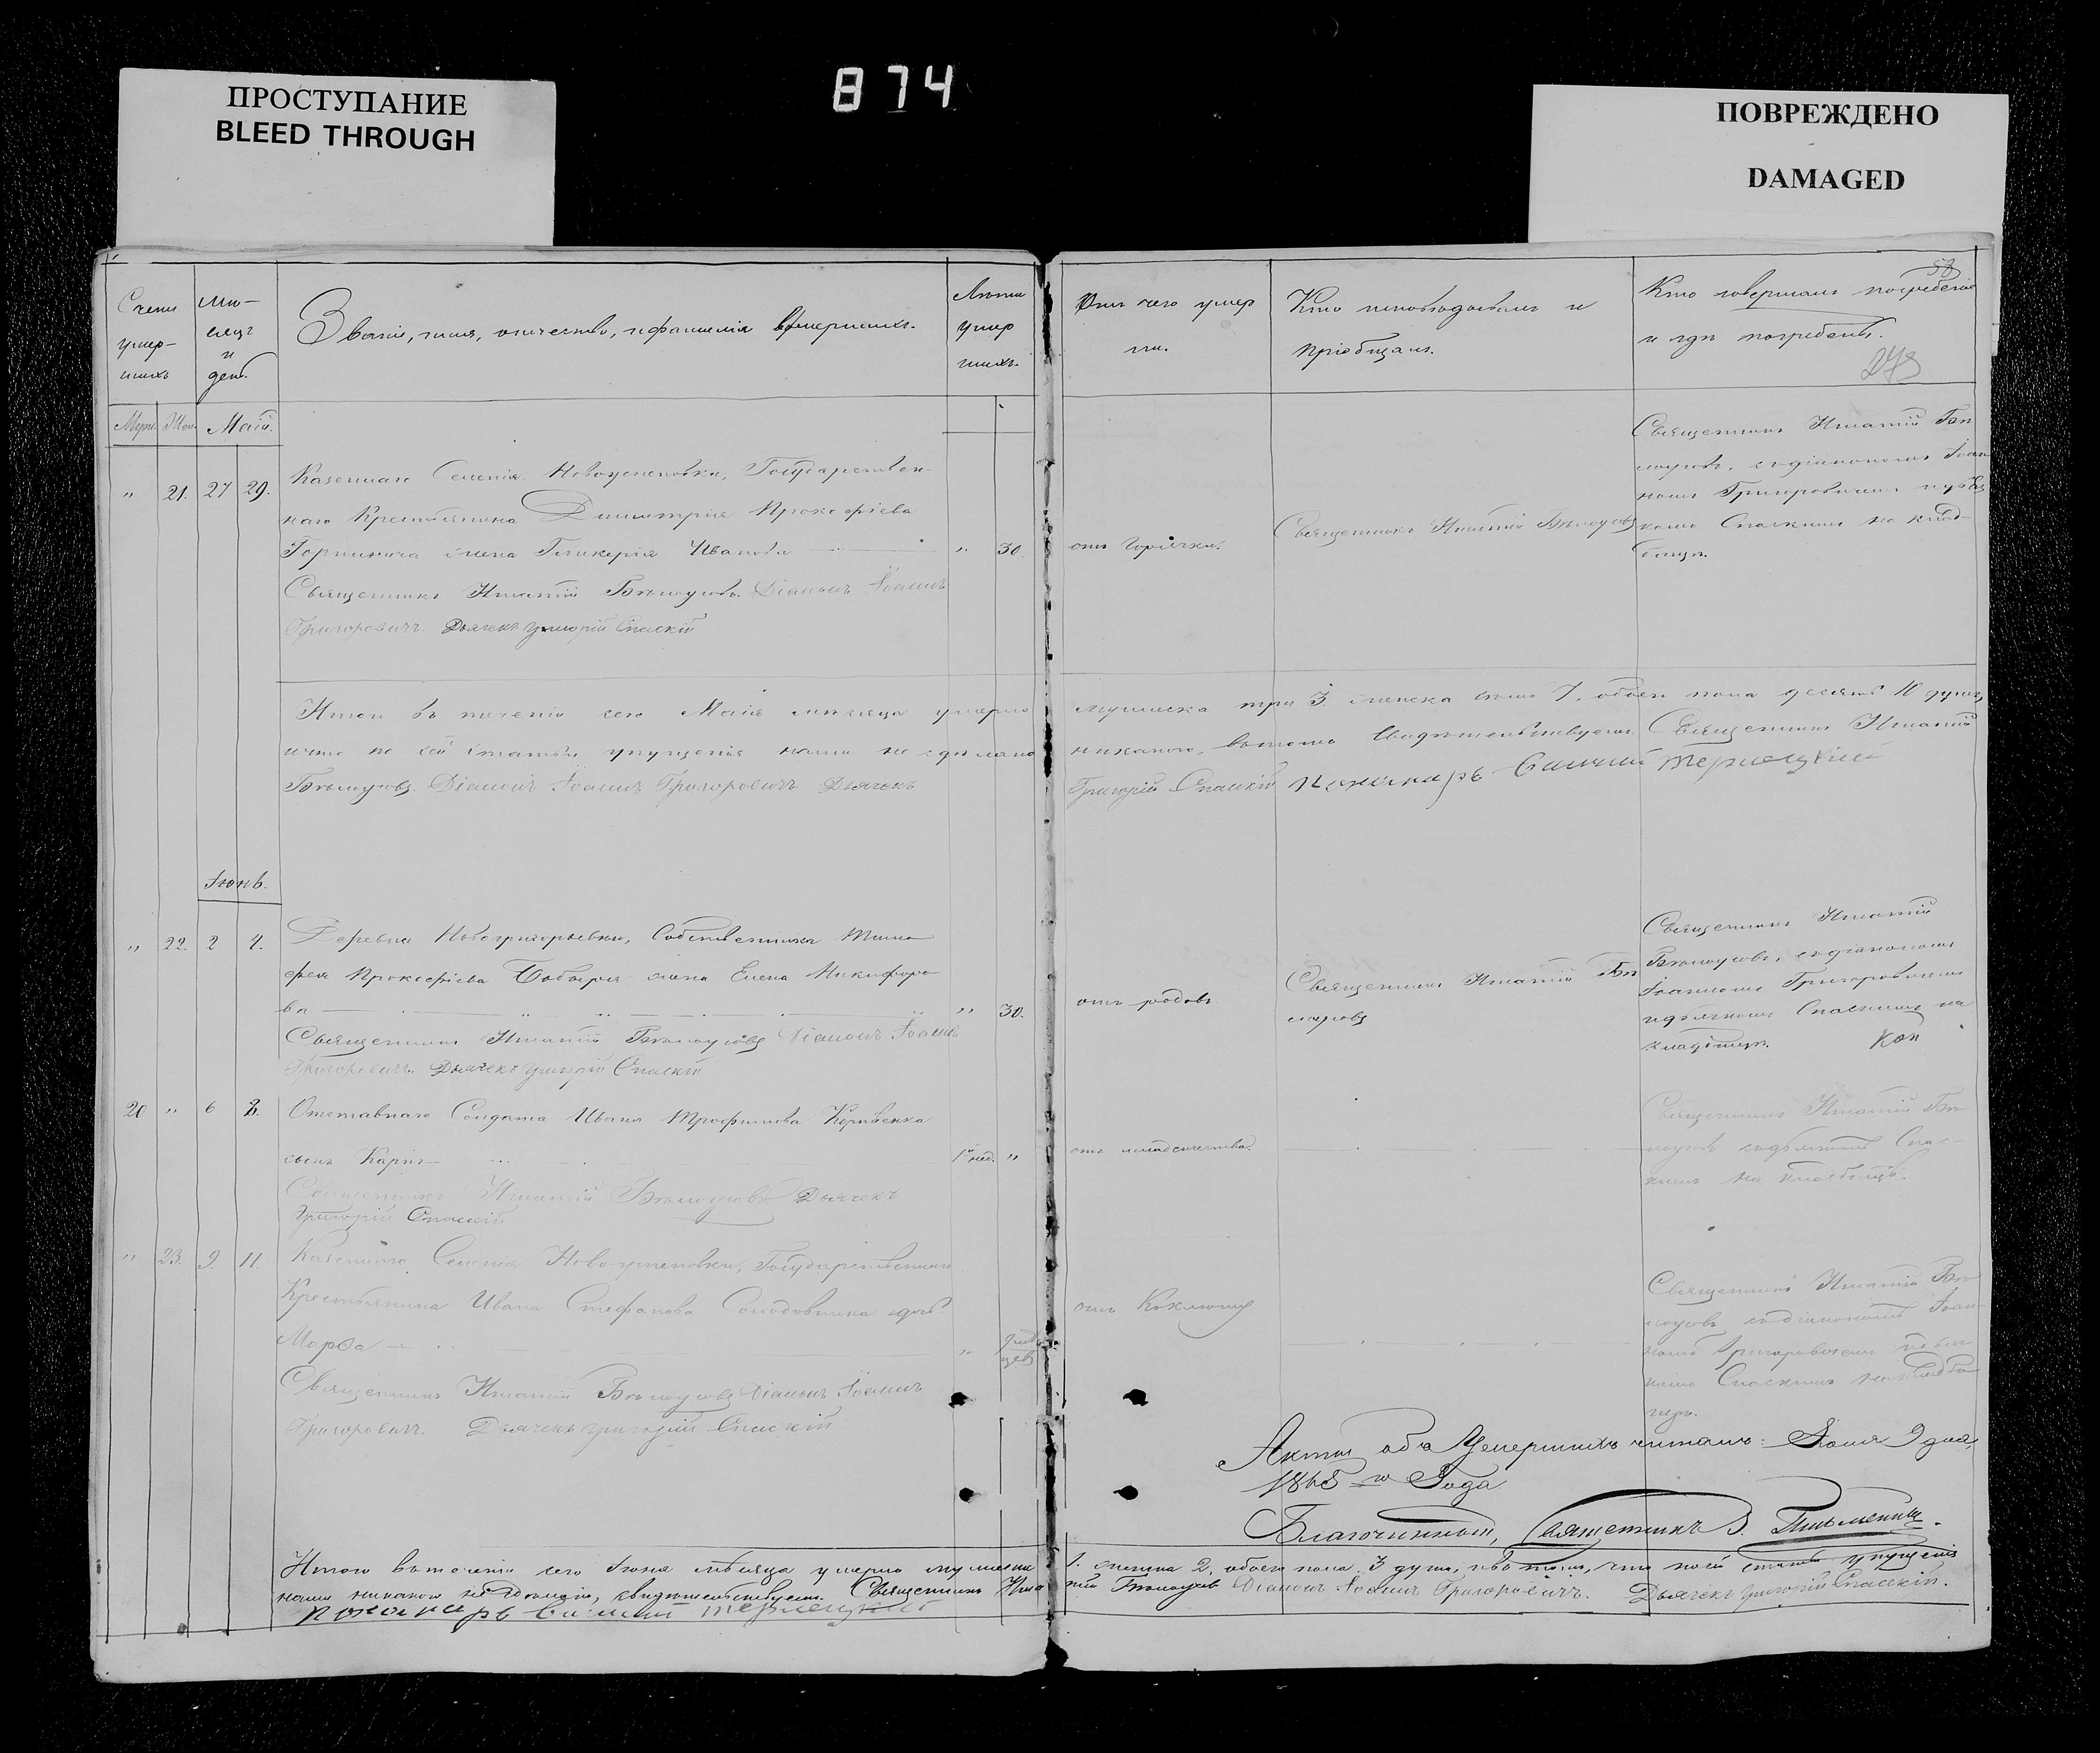 ПРОСТУПАНИЕ
BLEED THROUGH
874
ПОВРЕЖДЕНО
DAMAGED
58
Счетъ умер-шихъ
Мѣ-сяцъ и день.
Званіе, имя, отчество, и фамилія умершихъ.
Лѣта умер шихъ.
Отъ чего умер ли.
Кто исповѣдовалъ и пріобщалъ.
Кто совершалъ погребеніе и гдѣ погребены.
Муж. Жен. Май.
" 21. 27 29.
Казеннаго Селенія Новоуспеновки, Государствен-
наго Крестьянина Димитрія Прокофіева
жена Гликерія Иванова " 30.
Священникъ Игнатій Бѣлоусовъ. Діаконъ Іоаннъ
Григоровичъ. Дьячекъ Григорій Спаскій
отъ Горячки.
Священникъ Игнатій Бѣлоусовъ
Священникъ Игнатій Бѣ
лоусовъ, съ діакономъ Іоан
номъ Григоровичемъ и дьяч
комъ Спаскимъ на клад-
бищѣ.
Итого въ теченіи сего Мая мѣсяца умерло
мужеска три 3, женска семь 7, обоего пола десять 10 душъ,
и что по сей статьи упущенія нами не сдѣлано
никакого, въ томъ свидѣтельствуемъ Священникъ Игнатій
Бѣлоусовъ. Діаконъ Іоаннъ Григоровичъ. Дьячекъ
Григорій Спаскій
Іюнь.
" 22. 2 4.
Деревни Новогригорьевки, Собственника Тимо
фея Прокофіева жена Елена Никифоро
ва " 30.
Священникъ Игнатій Бѣлоусовъ Діаконъ Іоаннъ
Григоровичъ. Дьячекъ Григорій Спаскій
отъ родовъ
Священникъ Игнатій Бѣ
лоусовъ
Священникъ Игнатій
Бѣлоусовъ, съ діакономъ
Іоанномъ Григоровичемъ
и дьячкомъ Спаскимъ на
кладбищѣ.
20 " 6 8.
Отставнаго Солдата Ивана Трофимова
сынъ Карпъ 1 нед. "
Священникъ Игнатій Бѣлоусовъ Дьячекъ
Григорій Спаскій
отъ младенчества.
Священникъ Игнатій Бѣ
лоусовъ съ дьячкомъ Спас-
кимъ на кладбищѣ.
" 23. 9. 11.
Казеннаго Селенія Ново-успеновки, Государственнаго
Крестьянина Ивана Стефанова Солодовника дочь
Марѳа "
Священникъ Игнатій Бѣлоусовъ Діаконъ Іоаннъ
Григоровичъ. Дьячекъ Григорій Спаскій
отъ Коклюшу
Священникъ Игнатій Бѣ
лоусовъ съ діакономъ Іоан
номъ Григоровичемъ и дьяч
комъ Спаскимъ на кладби
щѣ.
Акты объ Умершихъ читалъ: Іюля 9 дня,
1865 го Года
Благочинный, Священникъ В. Письменный.
Итого въ теченіи сего Іюня мѣсяца умерло мужеска
1. женска 2. обоего пола 3 души, и въ томъ, что по сей статьи упущенія
нами никакого не сдѣлано, свидѣтельствуемъ. Священникъ Игна
тій Бѣлоусовъ Діаконъ Іоаннъ Григоровичъ. Дьячекъ Григорій Спаскій.